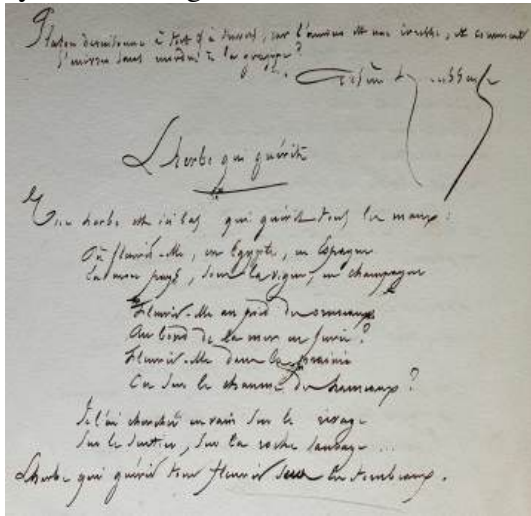 Platon déraisonne à tort et à travers, car l'amour est une ivresse, et comment
s'enivrer sans mordre à la grappe?
Arsène Houssaye
L'herbe qui guérit
Une herbe est ici bas qui guérit tous les maux:
Où fleurit-elle, en Egypte, en Espagne
En mon pays, sous la vigne, en Champagne
Fleurit-elle au pied des ormeaux
Au bord de la mer en furie?
Fleurit-elle dans la prairie
Ou sur le chaume des hameaux?
Je l'ai cherchée en vain sur le rivage
Sur le sentier, sur la roche sauvage...
L'herbe qui guérit tout fleurit sur les tombeaux.